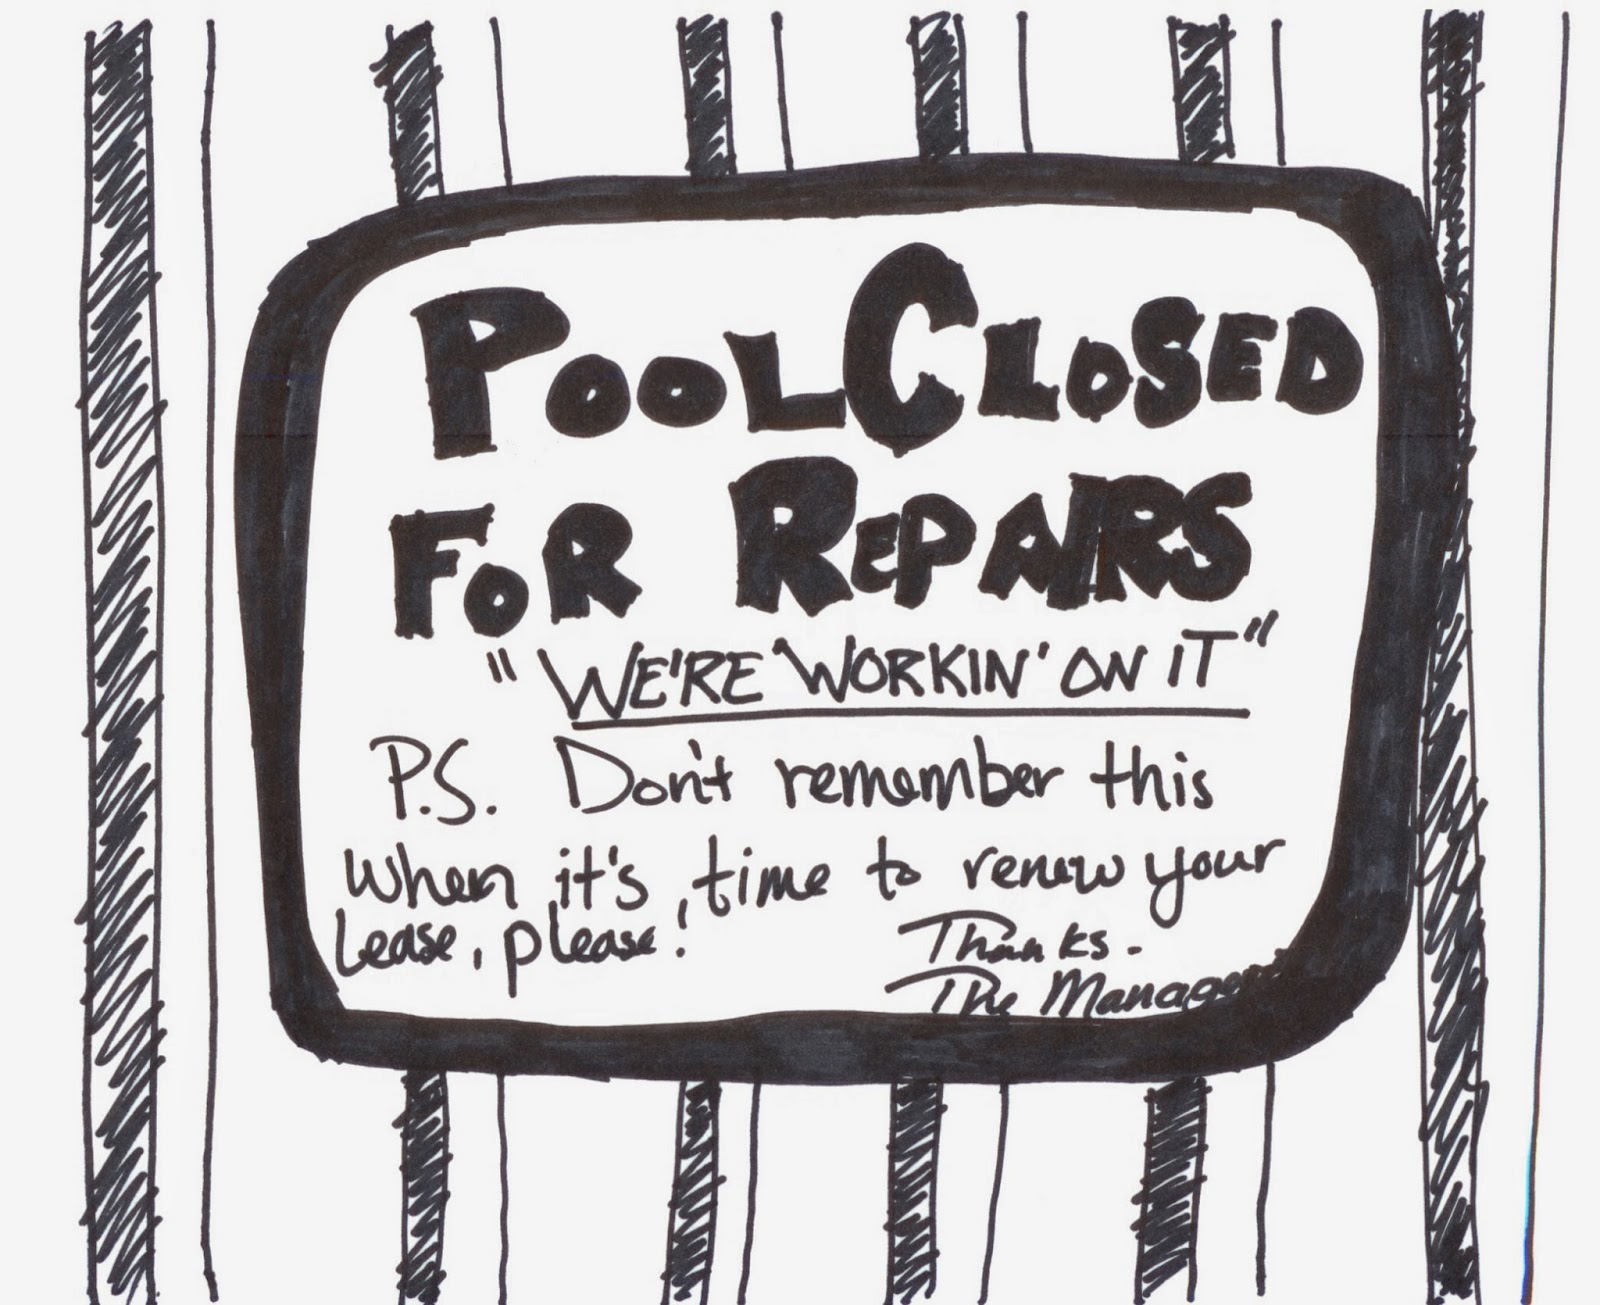 POOL CLOSED
FOR REPAIRS
"WE'RE WORKIN' ON IT"
P.S. Don't remember this
when it's time to renew your
Lease, please!
Thanks.
The